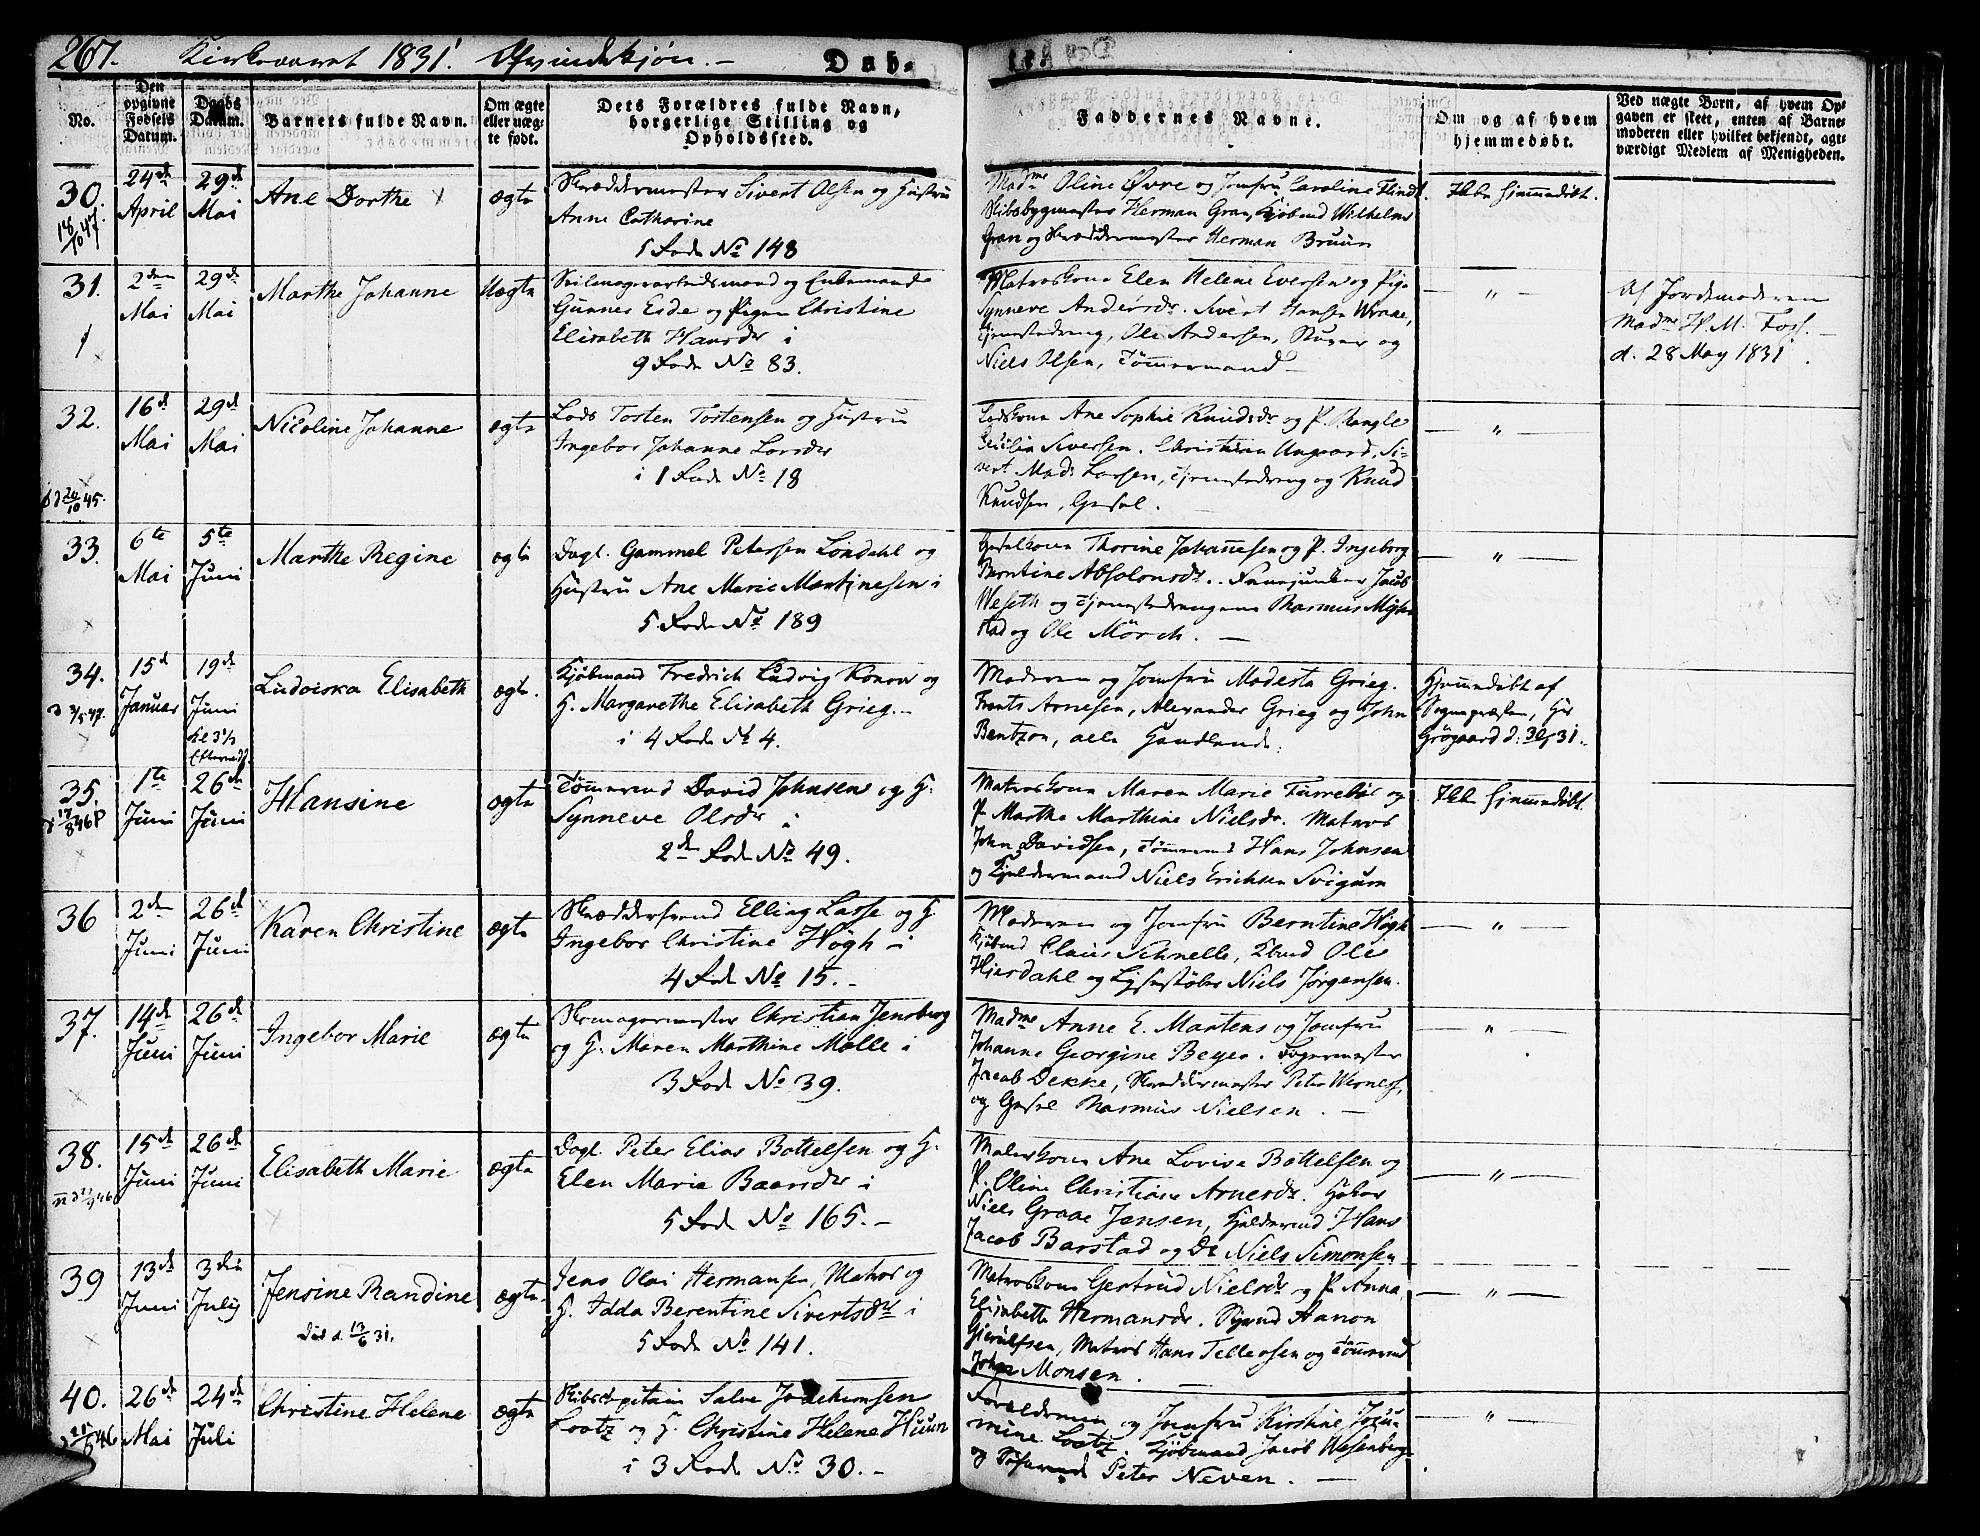 267. Kirkeaaret 1831. Qvindekjön. –
Döb-
te.
No.
Den opgivne Fødsels Datum.
Daabs Datum.
Barnets fulde Navn.
Om ægte eller uægte født.
Dets Forældres fulde Navn, borgerlige Stilling og Opholdssted.
Faddernes Navne.
Om og af hvem hjemmedøbt.
Ved uægte Børn, af hvem Opgaven er skeet, enten af Barnemoderen eller hvilket bekjendt, agtværdigt Medlem af Menigheden.
30.
18/10 47.
24de April
29de Mai
Ane Dorthe
ægte
Skræddermester Sivert Olsen og Hustru
Anne Catharine
5 Rode No 148
Madme Oline Øvre og Jomfru Caroline Flindt.
Skibsbygmester Herman Gran, Kjøbmd Wilhelm
Gran og Skræddermester Herman Bruun
Ikke hjemmedøbt.
31.
2den Mai
29de Mai
Marthe Johanne
Uægte
Seilmagerarbeidsmand og Enkemand
Gunner Eide og Pigen Christine
Elisabeth Hansdr i
9 Rode No 83.
Matroskone Elen Helene Eversen og Pige
Synneve Andersdr. Sivert Hansen Wraae,
Tjenestedreng, Ole Andersen, Skriver og
Niels Olsen, Tömmermand –
— " —
Af Jordemoderen
Madme H. M. Foss. –
d. 28 May 1831.
32.
20/10 45.
16de Mai
29de Mai
Nicoline Johanne
ægte
Lods Torsten Torstensen og Hustru
Ingebor Johanne Larsdr
i 1 Rode No 18
Lodskone Ane Sophie Knudsdr og P. Mangle
Cecilia Iversen. Christian Ungaard, Si-
vert Mads Larsen, Tjenestedreng og Knud
Knudsen, Gesel.
— " —
33.
6te Mai
5te Juni
Marthe Regine
ægte
Dagl. Gammel Petersen Londahl og
Hustru Ane Marie Martinesen i
5 Rode No 189
Geselkone Thorine Johannesen og P. Ingeborg
Berntine Absolonsdr. Fanejunker Jacob
Weseth og Tjenestedrengene Rasmus Mjel-
stad og Ole Mörch. –
— " —
34.
3/5 47.
15de Januar
19de Juni
Kl 3½
Efterm.
Ludviska Elisabeth
ægte.
Kjøbmand Fredrich Ludvig Konow og
H. Margarethe Elisabeth Grieg. –
i 4 Rode No 4.
Moderen og Jomfru Modesta Grieg.
Frants Arnesen, Alexander Grieg og John
Bentzon, alle Handlende.
Hjemmedøbt af
Sognepræsten, Hr
Grøgaard d. 31.
35.
1te Juni
26de Juni
Hansine
ægte
Tömmermd David Johnsen og H.
Synneve Olsdr i
2den Rode No 49.
Matroskone Maren Marie Turrebøe og
P. Marthe Marthine Nielsdr. Matros
John Davidsen, Tömmermd Hans Johnsen
og Kjeldermand Niels Erichsen Svigum
Ikke hjemmedøbt.
36
2den Juni
26de Juni
Karen Christine
ægte
Skræddersvend Elling Lasse og H.
Ingebor Christine Högh i
4 Rode No 15. –
Moderen og Jomfru Berntine Högh
Kjøbmd Claus Schnelle, Ole
Hjersdahl og Lysestøber Niels Jørgensen.
— " —
37.
14de Juni
26de Juni
Ingebor Marie
ægte
Skomagermester Christian Jensberg
og H. Maren Marthine Malle i
3 Rode No 39.
Madme Anne E. Martens og Jomfru
Johanne Georgine Beyer. Bagermester
Jacob Dekke, Skræddermester Peter Wernes,
og Gesel Rasmus Nielsen. –
" —
38.
15de Juni
26de Juni
Elisabeth Marie
ægte
Dagl. Peter Elias Bottelsen og H.
Elen Maria Baarsdr i
5 Rode No 165. –
Malerkone Ane Lovise Bottelsen og
P. Oline Christiane Arnesdr. Høker
Niels Graae Jensen, Kjeldermd Hans
Jacob Barstad og Do Niels Simonsen
— " —
39
13de Juni
3die July
Jensine Randine
Død d. 13/6 31.
ægte.
Jens Olai Hermansen, Matros og
H. Idda Berentine Sivertsdr i
5 Rode No 141.
Matroskone Gertrud Nielsdr og P. Anna
Elisabeth Hermansdr. Aanon
Gierulfsen, Matros Hans Tellersen og Tömmermd
Johan Monsen. –
— " —
40.
26de Mai
24de Juli
Christine Helene
ægte
Skibscapitain Salve Jochumsen
Lootz og H. Christine Helene Huun
i 3 Rode No 30. –
Forældrene og Jomfru Kirstine Joku-
mine Lootz. Kjøbmand Jacob Wesenberg
og Peter Neven. –
— " —